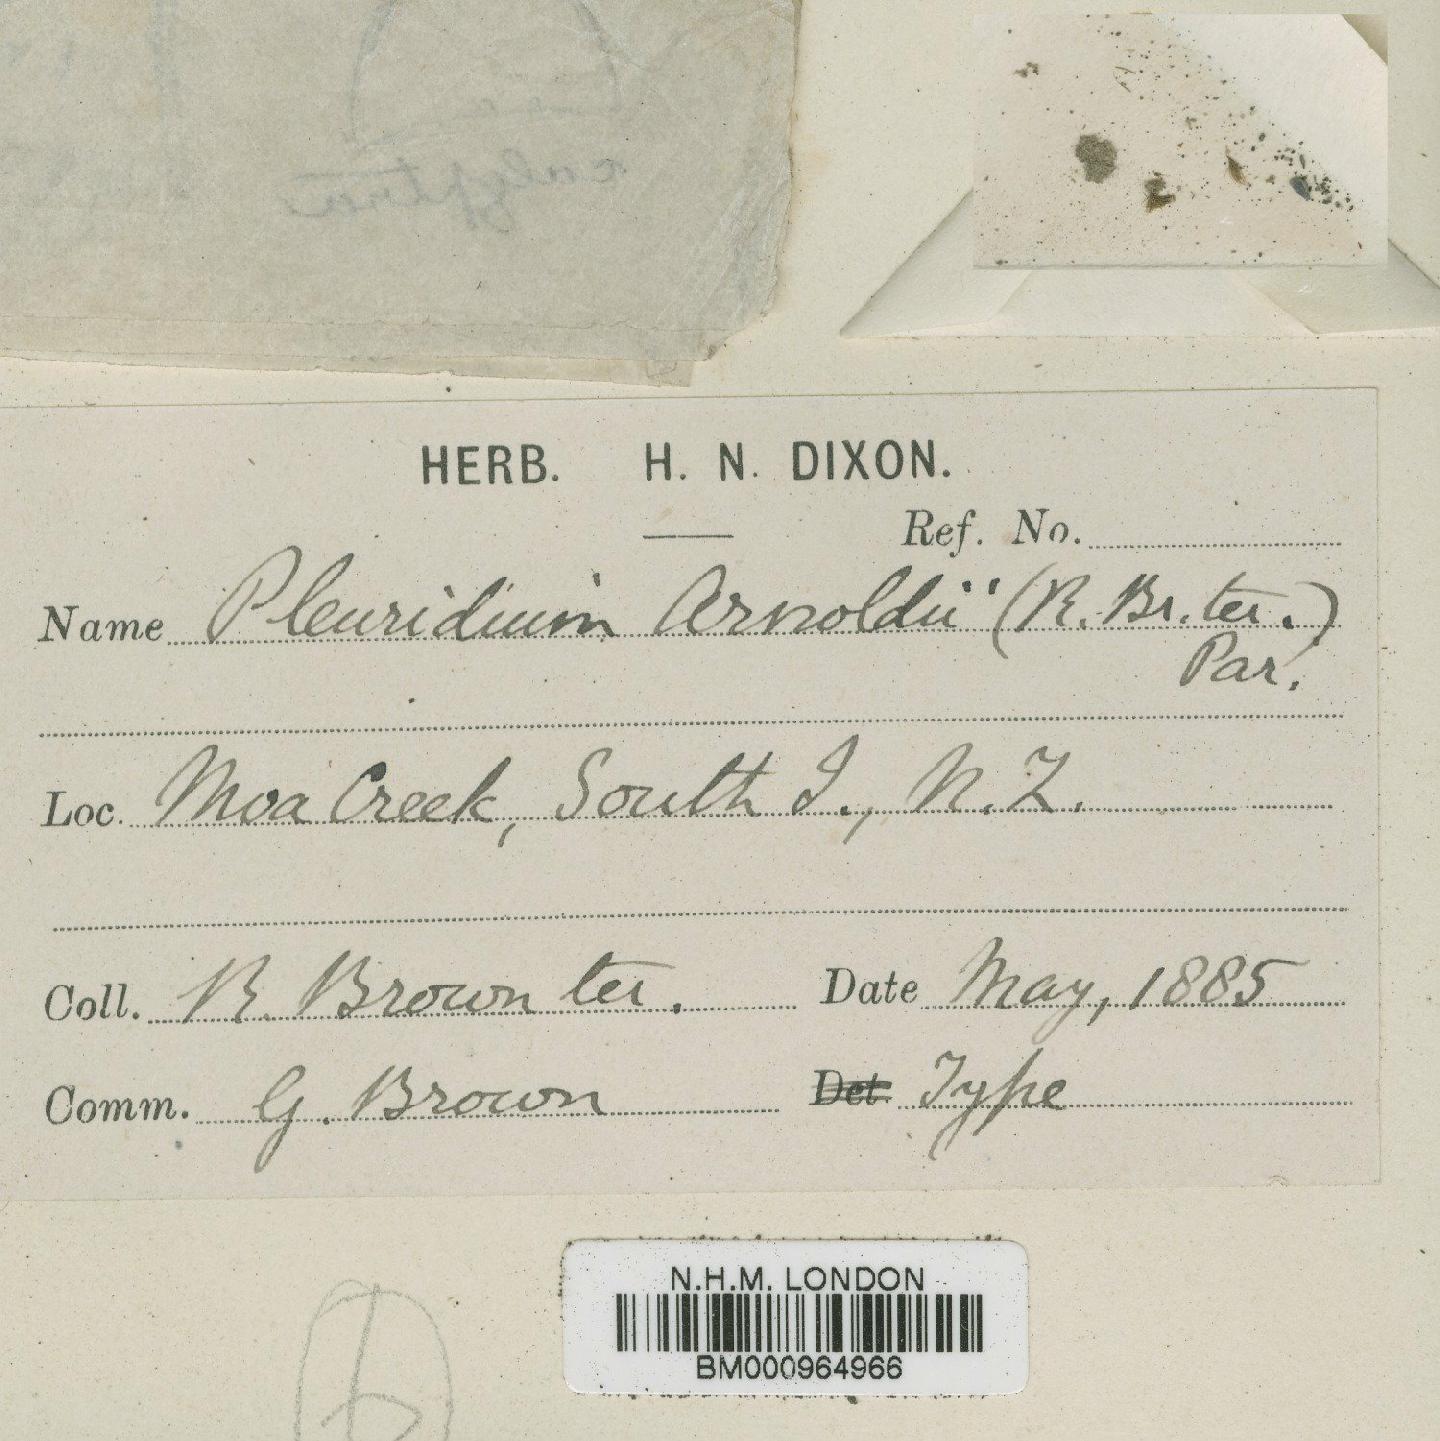 calyptra
HERB. H. N. DIXON.
Ref. No.
Name Pleuridium Arnoldii (R. Br. ter.)
Par.
Loc. Moa Creek, South I., N. Z.
Coll. R. Brown ter. Date May, 1885
Comm. G. Brown Det. Type
N.H.M. LONDON
BM000964966